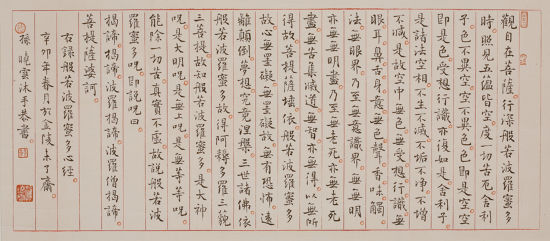 觀自在菩薩行深般若波羅蜜多
時照見五蘊皆空度一切苦厄舍利
子色不異空空不異色色即是空空
即是色受想行識亦復如是舍利子
是諸法空相不生不滅不垢不淨不增
不減是故空中無色無受想行識無
眼耳鼻舌身意無色聲香味觸
法無眼界乃至無意識界無無明
亦無無明盡乃至無老死亦無老死
盡無苦集滅道無智亦無得以無所
得故菩提薩埵依般若波羅蜜多
故心無罣礙無罣礙故無有恐怖遠
離顛倒夢想究竟涅槃三世諸佛依
般若波羅蜜多故得阿耨多羅三藐
三菩提故知般若波羅蜜多是大神
呪是大明呪是無上呪是無等等呪
能除一切苦真實不虛故說般若波
羅蜜多呪即說呪曰
揭諦揭諦波羅揭諦波羅僧揭諦
菩提薩婆訶
右録般若波羅蜜多心經
辛卯年春月於金陵未了齋
孫曉雲沐手恭書